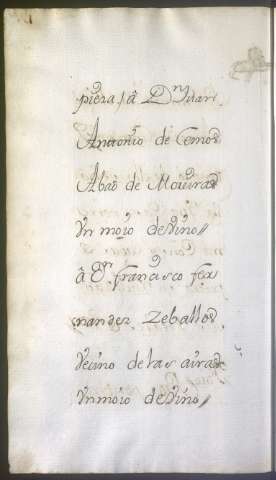 piera / â Dⁿ Juan
Antonio de Lemos
Abad de Moeiras
Un moio de Vino //
â Dⁿ francisco fer
nandez Zeballos
Vecino de las airas
Un moio de Vino //